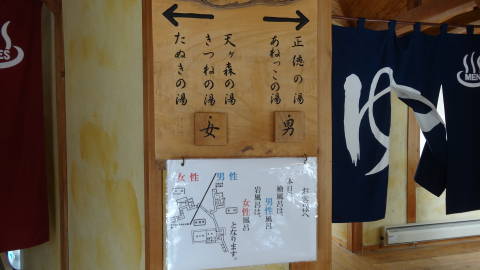 正徳の湯
あねっこの湯
男
天ヶ森の湯
きつねの湯
たぬきの湯
女
お客様へ
本日
檜風呂は、
男性風呂
岩風呂は、
女性風呂
となります。
女性 男性
ゆ
MEN